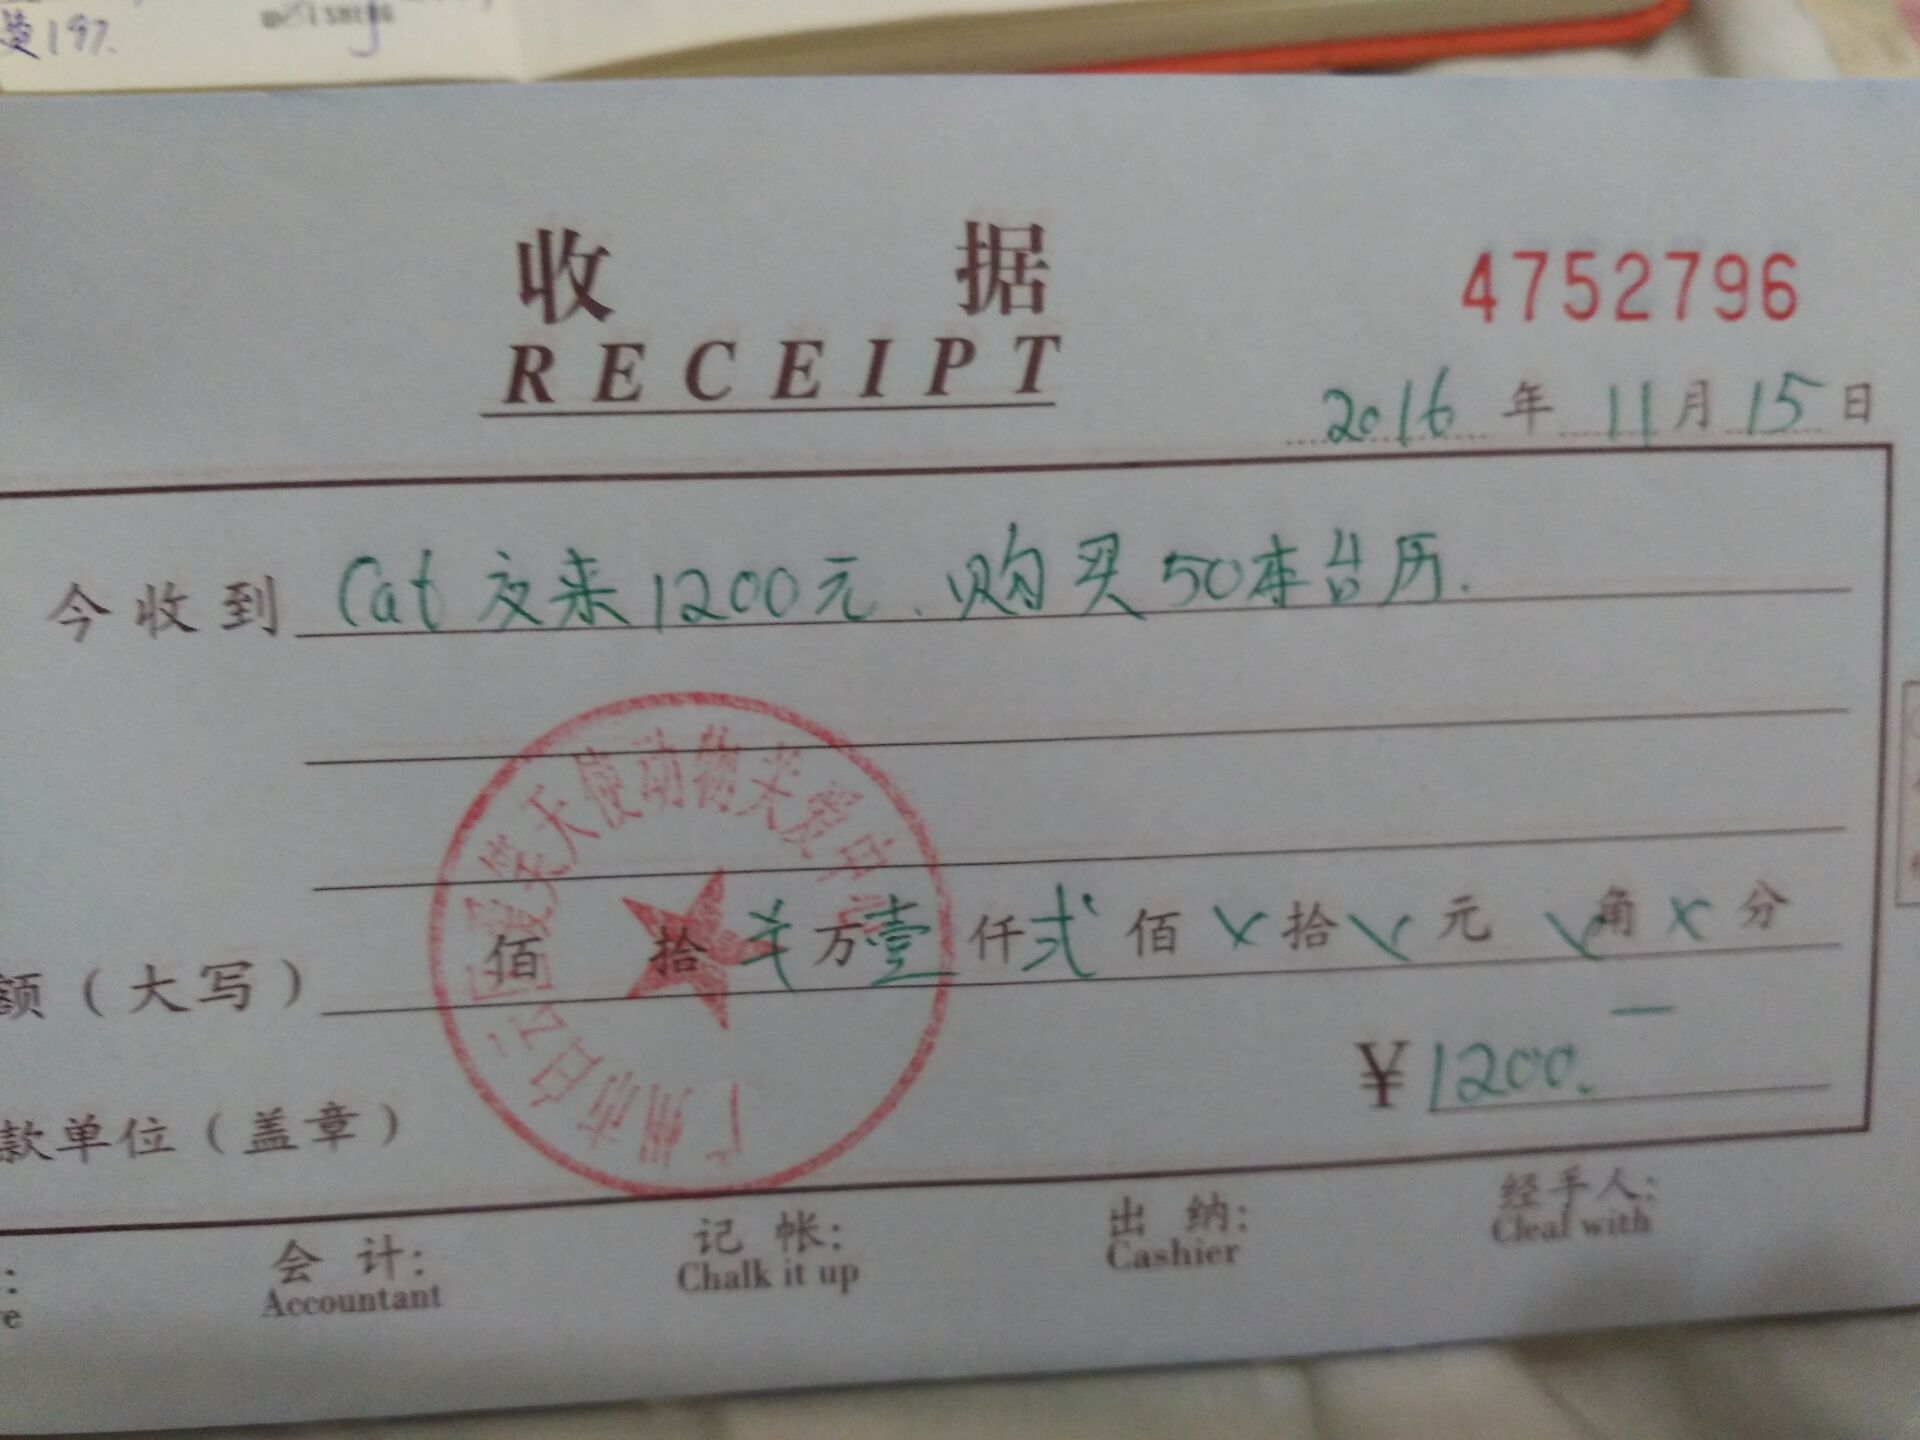 197.
收据
RECEIPT
4752796
2016年11月15日
今收到 Cat 交来1200元.购买50本台历.
广州市白云区最天天使动物关爱中
额(大写) 佰 拾 万壹仟弍佰×拾 元 角×分
¥1200.
款单位(盖章)
会计:
Accountant
记帐:
Chalk it up
出纳:
Cashier
经手人:
Cleal with